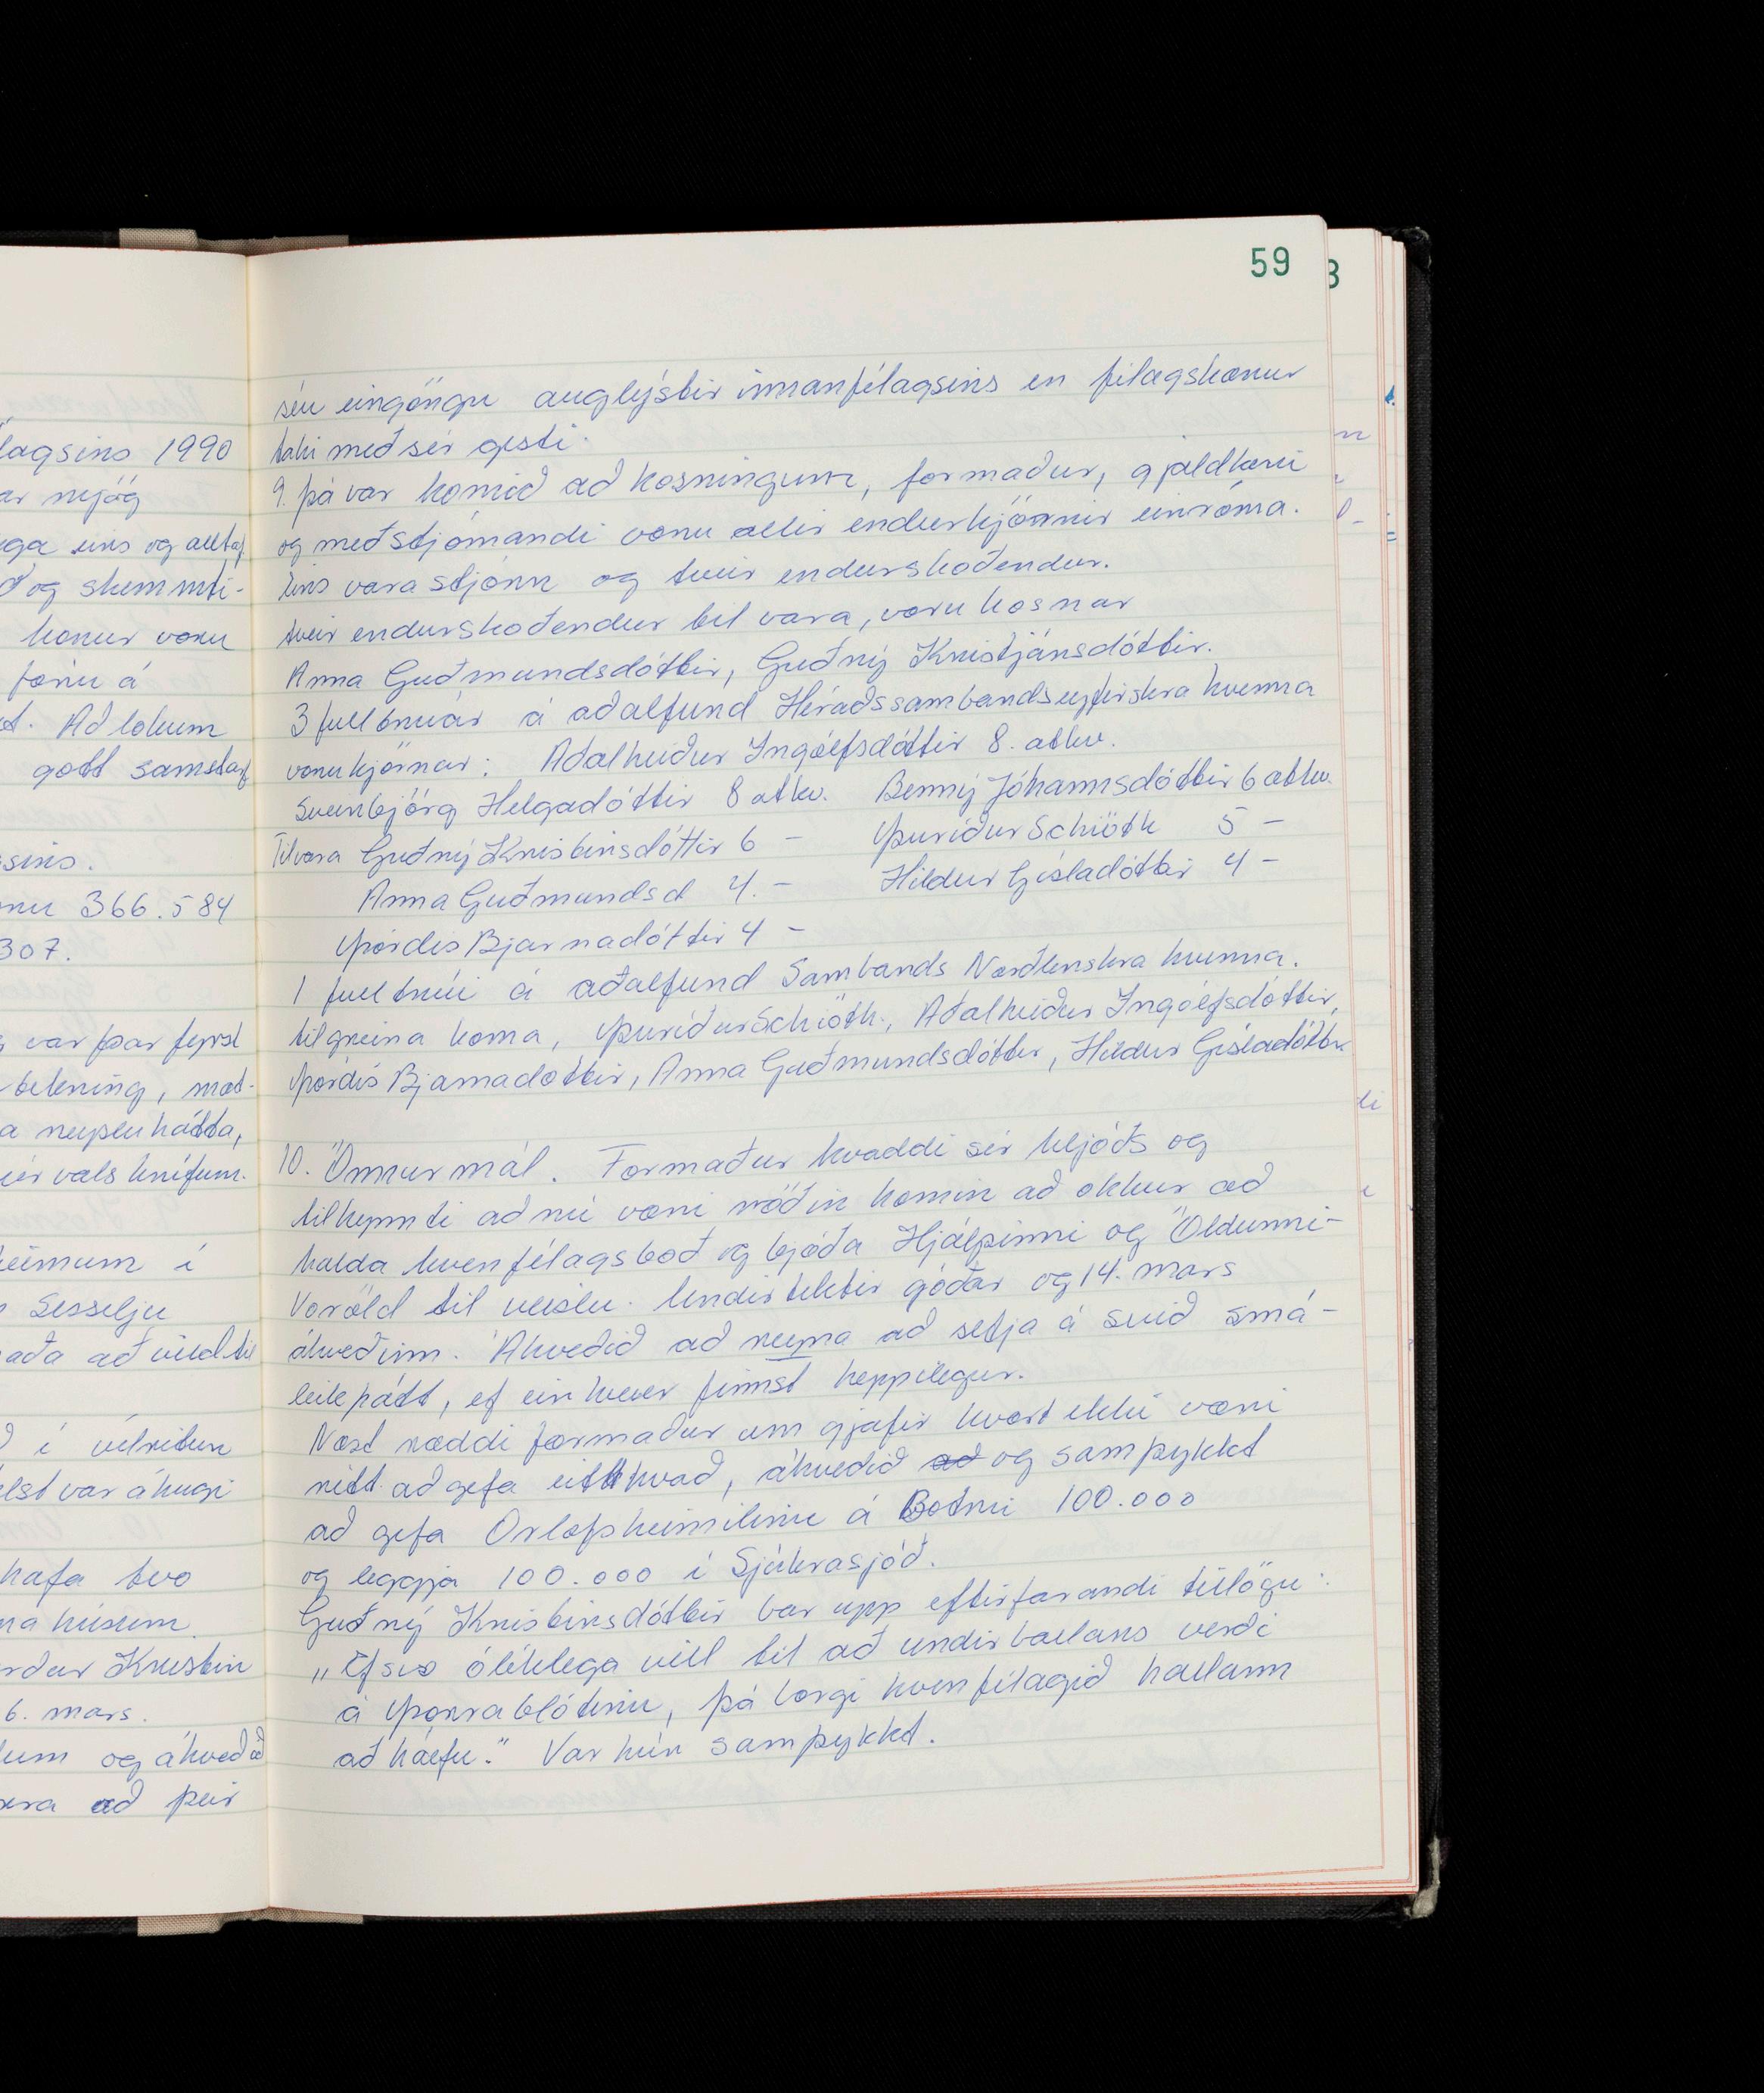 59
séu eingöngu auglýstir innanfélagsins en félagskonur
taki með sér gesti.
9. Þá var komið að kosningum, formaður, gjaldkeri
og meðstjórnandi voru allir endurkjörnir einróma.
eins varastjórn og tveir endurskoðendur.
tveir endurskoðendur til vara, voru kosnar
Anna Guðmundsdóttir, Guðný Kristjánsdóttir.
3 fulltrúar á aðalfund Héraðssambandseyfirskra kvenna
voru kjörnar: Aðalheiður Ingólfsdóttir 8. atkv.
Sveinbjörg Helgadóttir 8 atkv. Benný Jóhannsdóttir 6 atkv.
Til vara Guðný Kristinsdóttir 6 - Þuríður Schiöth 5 -
Anna Guðmundsd 4. - Hildur Gísladóttir 4 -
Þórdís Bjarnadóttir 4 -
1 fulltrúi á aðalfund Sambands Norðlenskra kvenna.
til greina koma, Þuríður Schiöth., Aðalheiður Ingólfsdóttir,
Þórdís Bjarnadóttir, Anna Guðmundsdóttir, Hildur Gísladóttir
10. Önnur mál. Formaður kvaddi sér hljóðs og
tilkynnti að nú væri röðin komin að okkur að
halda kvenfélagsboð og bjóða Hjálpinni og Öldunni-
Voröld til veislu. Undirtektir góðar og 14. mars
ákveðinn. Ákveðið að reyna að setja á svið smá-
leikþátt, ef einhver finnst heppilegur.
Næst ræddi formaður um gjafir hvort ekki væri
rétt að gefa eitthvað, ákveðið að og samþykkt
að gefa Orlofsheimilinu á Botni 100.000
og leggja 100.000 í Sjúkrasjóð.
Guðný Kristinsdóttir bar upp eftirfarandi tillögu:
„Ef svo ólíklega vill til að undirballans verði
á Þorrablótinu, þá borgi kvenfélagið hallann
að hálfu." Var hún samþykkt.
lagsins 1990
ar mjög
ega eins og alltaf
ð og skemmti-
konur voru
fóru á
Að lokum
gott samstarf
sins.
366.584
307.
var þar fyrst
mat-
Sesselju
í vélritun
elst var áhugi
hafa tvo
Kristin
6. mars.
og ákveðið
að þeir